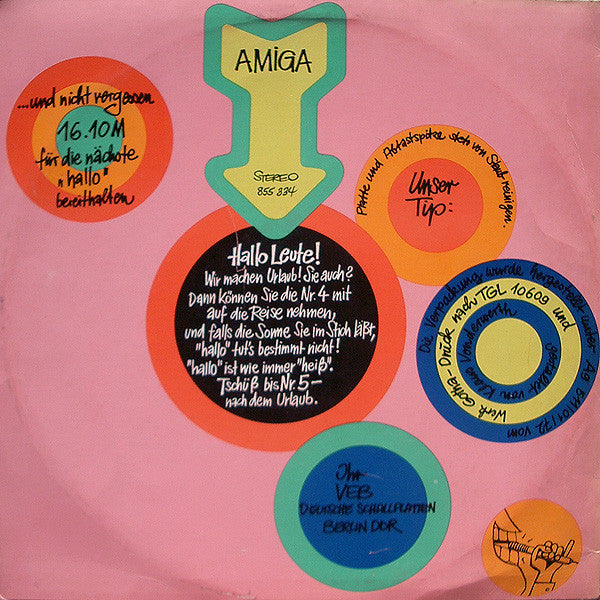 AMIGA
STEREO
855 334
...und nicht vergessen
16.10 M
für die nächste
"hallo"
bereithalten
Platte und Abtastspitze stets von Staub reinigen.
Unser
Tip:
Hallo Leute!
Wir machen Urlaub! Sie auch?
Dann können Sie die Nr. 4 mit
auf die Reise nehmen,
und falls die Sonne Sie im Stich läßt,
"hallo" tut's bestimmt nicht!
"hallo" ist wie immer "heiß".
Tschüß bis Nr. 5–
nach dem Urlaub.
Die Verpackung wurde hergestellt unter Ag 511/01/72 vom
Werk Gotha-Druck nach TGL 10609 und
gestaltet von Klaus
Ihr
VEB
DEUTSCHE SCHALLPLATTEN
BERLIN DDR